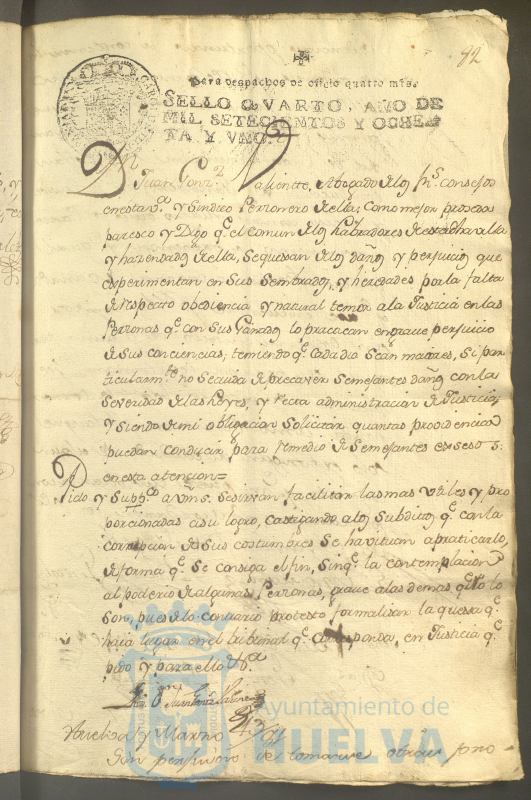 82
Para despachos de oficio quatro mrs.
SELLO QVARTO, AÑO DE
MIL SETECIENTOS Y OCHEN-
TA Y VNO.
Dn Juan Gonz.z Valiente, Abogado de los R.s consejos
en esta V.a y Sindico Perzonero de ella; como mejor proseda
paresco y Digo q.e el comun de los Labradores de esta dha villa
y hazendados de ella, se quessan de los daños y perjuicios que
experimentan en sus sembrados, y heredades por la falta
de respecto obediencia y natural temor a la Justicia en las
Perzonas q.e con sus Ganados lo practican en grave perjuicio
de sus conciencias, temiendo q.e cada dia sean maiores, si par
ticularm.te no se cuida de precaver semejantes daños con la
severidad de las Leyes, y recta administracion de Justicia;
y siendo de mi obligacion solicitar quantas providencias
puedan conducir para remedio de semejantes exsesos:
en esta atencion =
Pido y Supp.co a Vms. se sirvan facilitar las mas utiles y pro
porcionadas a su logro, castigando a los subditos q.e con la
corrupcion de sus costumbres se havituan a praticarlo,
de forma q.e se consiga el fin, sin q.e la contemplacion
al poderio de algunas Perzonas, grave a las demas q.e no lo
son, pues de lo contrario protesto formalisar la quexa q.e
haia lugar en el tribunal q.e corresponda, en Justicia q.e
pido y para ello &.a
Juan Gonz Valiente
Huelva y Marzo
Ayuntamiento de
HUELVA